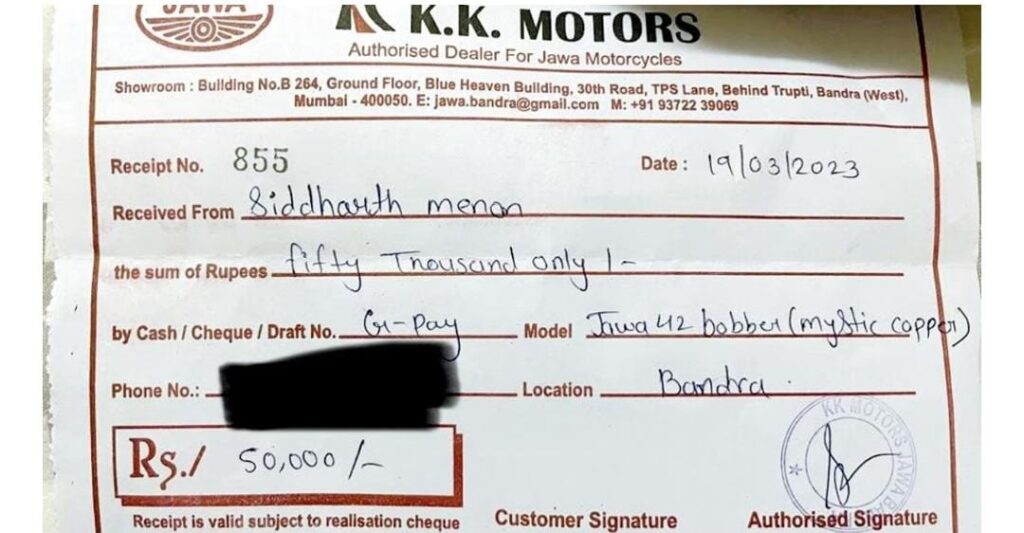 JAWA
K.K. MOTORS
Authorised Dealer For Jawa Motorcycles
Showroom : Building No.B 264, Ground Floor, Blue Heaven Building, 30th Road, TPS Lane, Behind Trupti, Bandra (West),
Mumbai - 400050. E: jawa.bandra@gmail.com M: +91 93722 39069
Receipt No. 855 Date : 19/03/2023
Received From Siddharth menon
the sum of Rupees fifty Thousand only /-
by Cash / Cheque / Draft No. G-Pay Model Jawa 42 bobber (mystic copper)
Phone No.: Location Bandra.
Rs./ 50,000/-
KK MOTORS JAWA
Receipt is valid subject to realisation cheque Customer Signature Authorised Signature